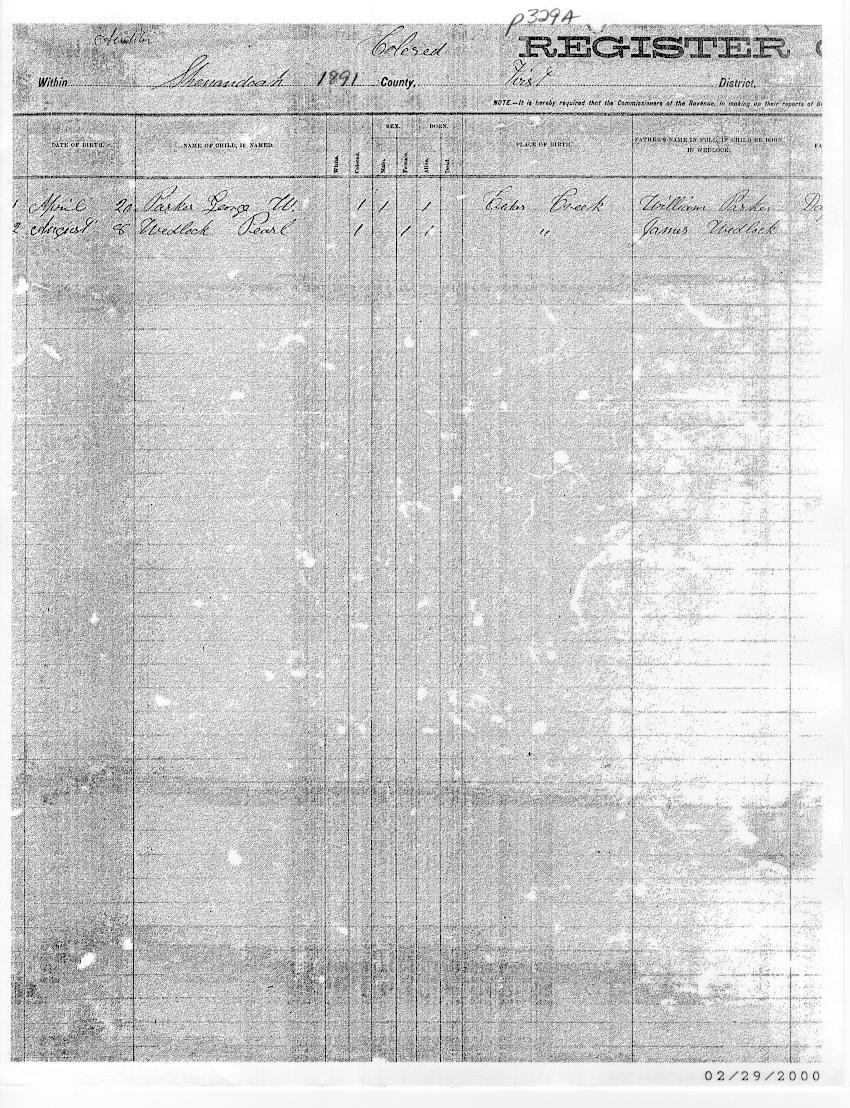 p329A
Auditor
Colored
REGISTER
Within Shenandoah 1891 County, First District.
NOTE.—It is hereby required that the Commissioners of the Revenue, in making up their reports of
SEX. BORN.
DATE OF BIRTH. NAME OF CHILD, IF NAMED. White. Colored. Male. Female. Alive. Dead. PLACE OF BIRTH. FATHER'S NAME IN FULL, IF CHILD BE BORN
IN WEDLOCK.
1 April 20 Parker George W. 1 1 1 Creek William Parker
2 August 8 Wedlock Pearl 1 1 1 " James Wedlock
02/29/2000